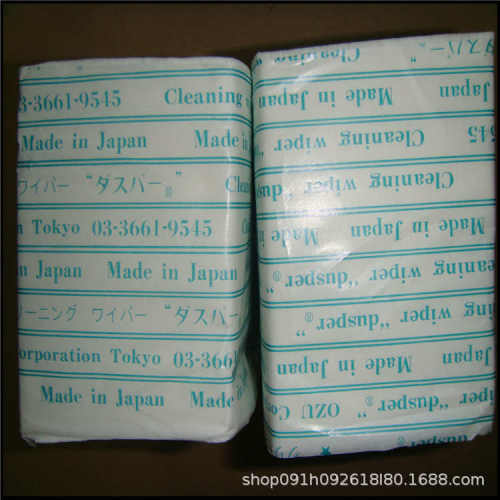 03-3661-9545 Cleaning
Made in Japan Made in
ワイパー “ダスパー®” Clea
n Tokyo 03-3661-9545 Co
n Japan Made in Japan
リーニング ワイパー “ダスパー
orporation Tokyo 03-366
Made in Japan Made
“ダスパー® Cleaning
Made in Japan Japan
545 Cleaning wiper “dusper
Cleaning wiper “dusper
Made in Japan Made in Japan
eaning wiper “dusper”®
wiper “dusper”®
Made in Japan Japan
OZU Co wiper “dusper”
dusper
shop091h092618l80.1688.com